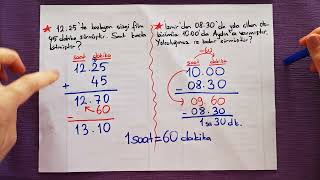 ★ 12.25'te başlayan çizgi film
45 dakika sürmüştür. Saat kaçta
bitmiştir?
saat dakika
12.25
+ 45
12.70
- 60
13.10
★ İzmir'den 08.30'da yola çıkan
otobüs 10.00'da Aydın'a varmıştır.
Yolculuğumuz ne kadar sürmüştür?
-60
saat dakika
10.00
- 08.30
09.60
- 08.30
1 sa 30 dk.
1 saat = 60 dakika